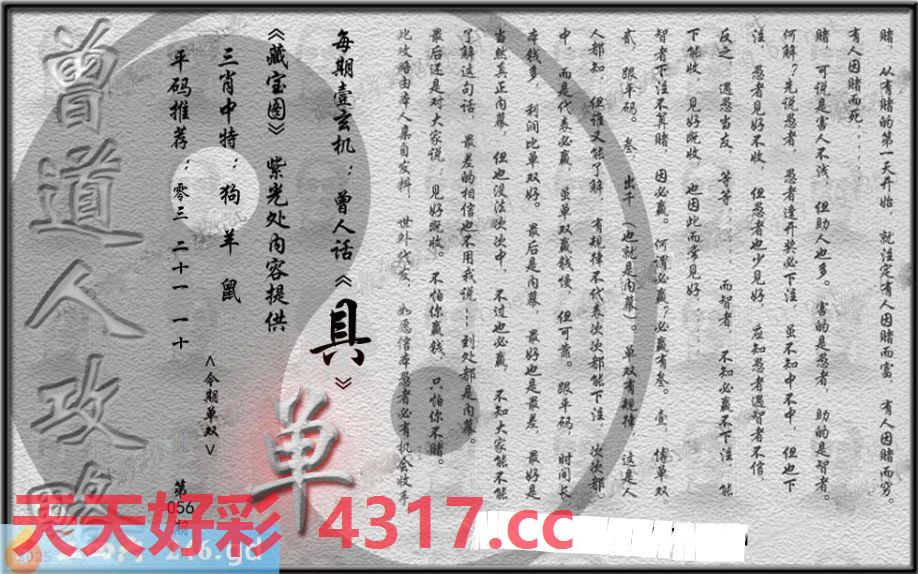 赌，从有赌的第一天开始，就注定有人因赌而富，有人因赌而穷。
有人因赌而死．．．．．．
赌，可说是害人不浅，但助人也多。害的是愚者，助的是智者。
何解？先说愚者，愚者逢开奖必下注，虽不知中不中，但也下
注，愚者见好不收，但愚者也少见好，应知愚者遇智者不信，
反之，遇愚当友，等等．．．而智者，不知必赢不下注，能
下能收，见好既收，也因此而常见好．．．．．．
智者下注不算赌，因必赢。何谓必赢？必赢有叁。壹，博单双
贰，跟平码。叁，出千（也就是内幕）。单双有规律，这是人
人都知，但谁又能了解，有规律不代表次次都能下注，次次都
中，而是代表必赢，虽单双赢钱慢，但可靠。跟平码，时间长
本钱多，利润比单双好。最后是内幕，最好也是最差，最好是
当然真正内幕，但也没法次次中，不过也必赢，不知大家能不能
了解这句话，最差的相信也不用我说．．．到处都是内幕。
最后还是对大家说：见好既收。不怕你赢钱，只怕你不赌。
此攻略由本人集自发料，世外代发，如愿信本愚者必有机会收手
每期壹玄机：曾人话《具》
《藏宝图》紫光处内容提供
三肖中特：狗 羊 鼠
平码推荐：零三 二十一 一十
<今期单双>
单
第
056
期
曾道人攻略
天天好彩 4317.cc
2025
246.gd